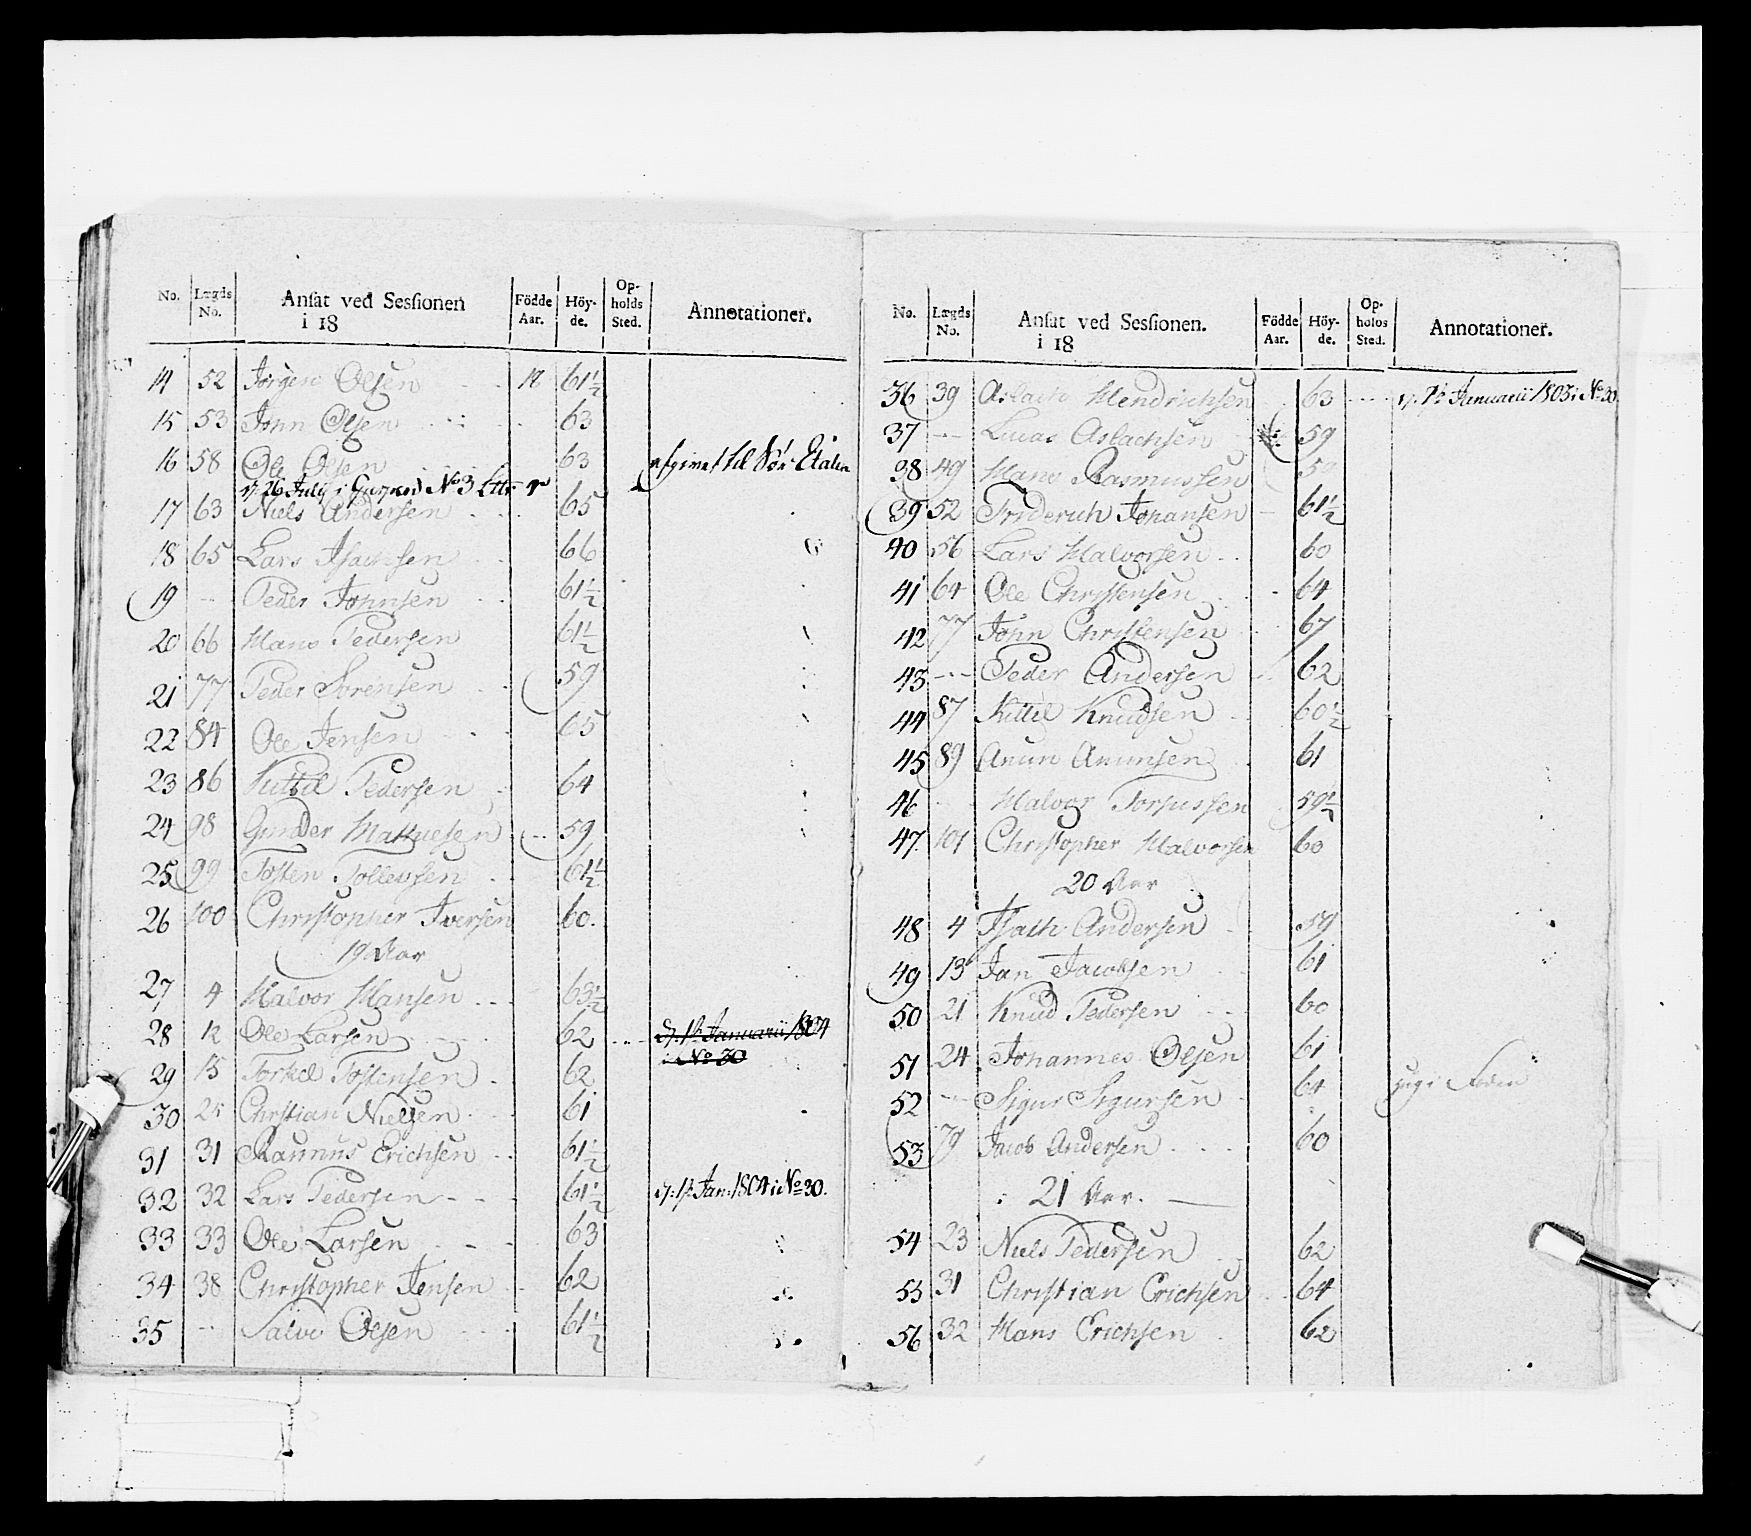 No. Lægds No. Ansat ved Sessionen i 18 Födde Aar. Höy-de. Op-holds Sted. Annotationer.
14 52 Jörgen Olsen 18 61½
15 53 John Olsen 63
16 58 Ole Olsen 63 afgivet til Sör-Etaten
26 July i No 3
17 63 Niels Andersen 65
18 65 Lars Isachsen 66
19 -- Peder Johnsen 61½
20 66 Hans Pedersen 61½
21 77 Peder Sörensen 59
22 84 Ole Jensen 65
23 86 Kittil Pedersen 64
24 98 Gunder Mathiesen 59
25 99 Tosten Tollevsen 61½
26 100 Christopher Iversen 60.
19 Aar
27 4 Halvor Hansen 63½
28 12 Ole Larsen 62 d. 1te Januarii 1804 i No 30
29 15 Torkel Tostensen 62
30 25 Christian Nielsen 61
31 31 Rasmus Erichsen 61½
32 32 Lars Pedersen 61½ d. 1te Jan: 1804 i No 30.
33 33 Ole Larsen 63
34 38 Christopher Jensen 62
35 -- Salve Olsen 61½
No. Lægds No. Ansat ved Sessionen. i 18 Födde Aar. Höy-de. Op-holds Sted. Annotationer.
36 39 Aslach Hendrichsen 63 d. 1te Januarii 1805 i No 30
37 -- Lucas Aslachsen 59
38 49 Hans Rasmussen 59
39 52 Friderich Johansen 61½
40 56 Lars Halvorsen 60
41 64 Ole Christensen 64
42 77 John Christensen 67
43 --- Peder Andersen 62
44 87 Kittil Knudsen 60½
45 89 Anun Anunsen 61
46 Halvor Torjussen 59½
47. 101 Christopher Halvorsen 60
20 Aar
48 4 Isach Andersen 59
49 13 Jan Jacobsen 61
50 21 Knud Pedersen 60
51 24 Johannes Olsen 61
52 -- Sigur Sigursen 64
53 79 Jacob Andersen 60
21 Aar.
54 23 Niels Pedersen 62
55 31 Christian Erichsen 64
56 32 Hans Erichsen 62